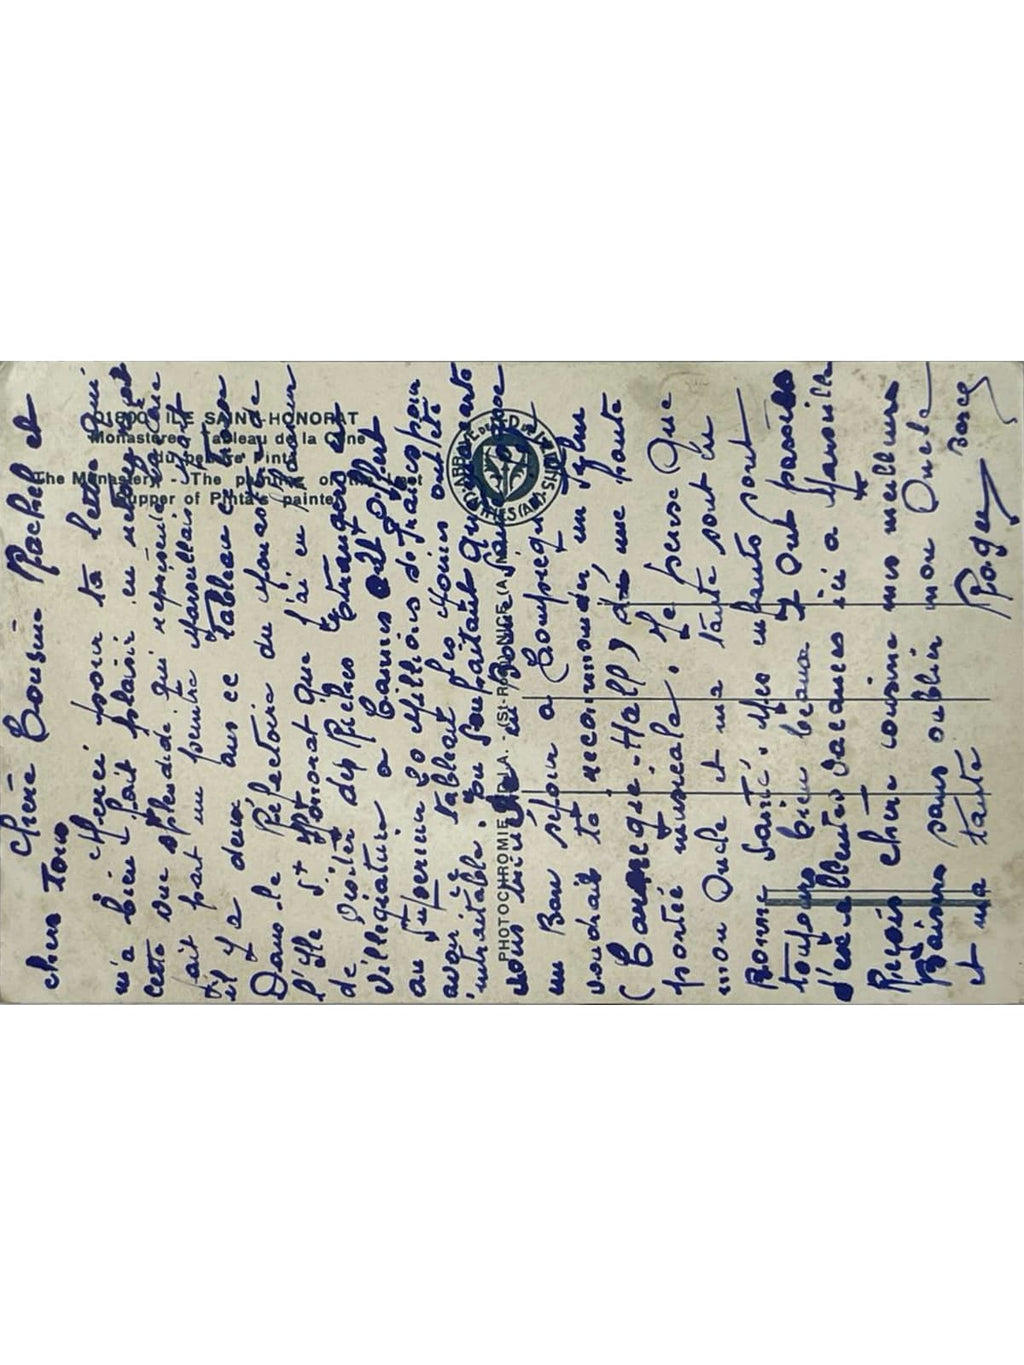 01800 - ILE SAINT-HONORAT
Monastère - Tableau de la Cène
du peintre Pinta
The Monastery - The painting of the last
supper of Pinta's painter
ABBAYE DE N.D. DE LERINS
CANNES (A.M.)
PHOTOCHROMIE
NICE (A.M.)
Chère Cousine Rachel et
chers Tous
Merci pour ta lettre qui
m'a bien fait plaisir en retour
cette vue splendide qui représente
fait par un peintre Marseillais
il y a deux ans ce Tableau
Dans le Réfectoire du Monastère de
l'Ile St Honorat que j'ai eu
de visiter des Riches Etrangers
villégiature à Cannes ont offert
au Superieur 20 Millions de francs pour
avoir ce tableau les Moines ont été
intraitable. en souhaitant que
vous
un Bon séjour à Compiègne
voudrait te recommander un
(Carnegie-Hall) une haute
portée musicale. Je pense que
mon Oncle et ma tante sont en
Bonne Santé. Mes enfants sont
toujours bien beaux et ont passés
d'excellentes vacances ici à Marseille
Reçois chère cousine mes meilleurs
Baisers sans oublier mon Oncle
et ma tante
Roger